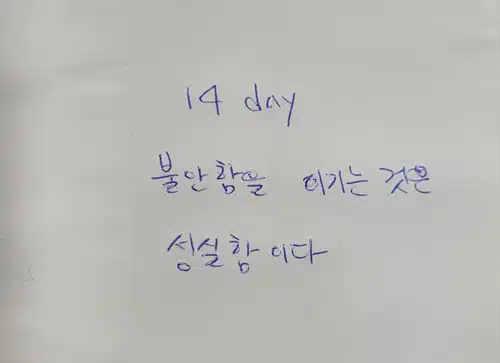 14 day
불안함을 이기는 것은
성실함이다